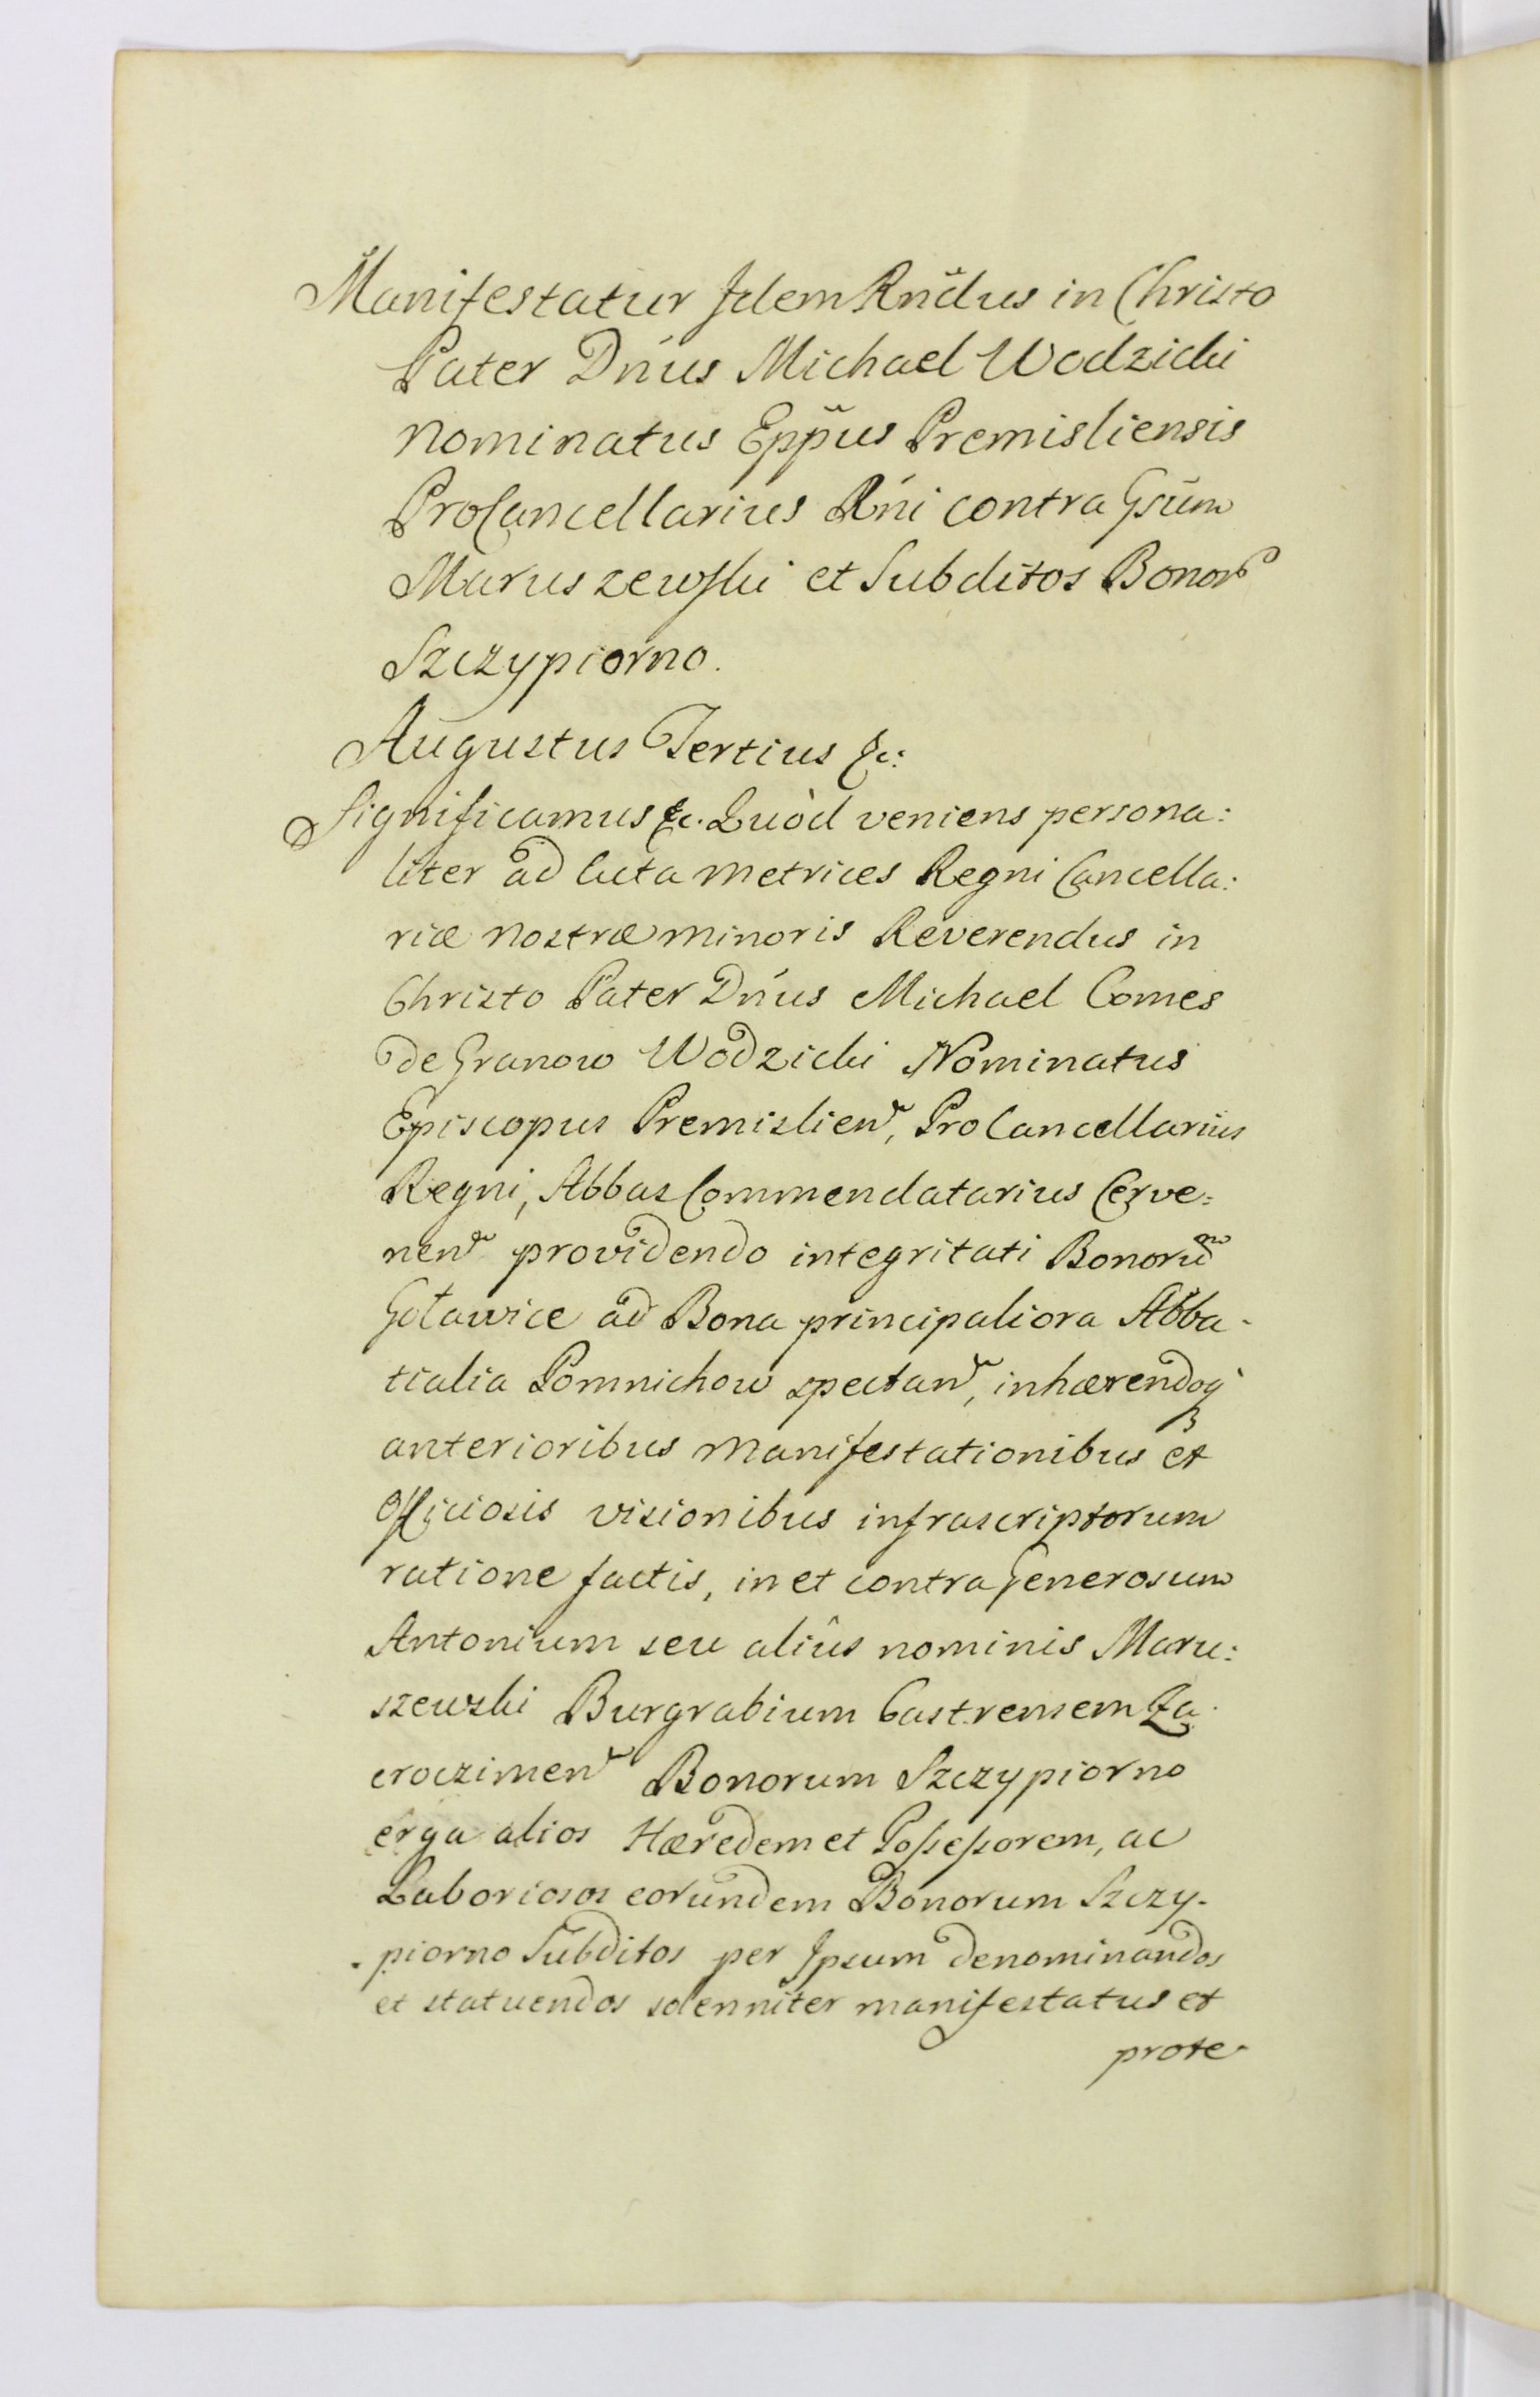 Manifestatur Idem Rñdus in Christo
Pater Dńus Michael Wodzicki
Nominatus Epp̃us Premisliensis
ProCancellarius Rńi contra Gsũm
Maruszewski et Subditos Bonor
Szczypiorno.
Augustus Tertius &c:
Significamus &c. Quòd veniens persona:
liter ad Acta Metrices Regni Cancella:
riæ Nostræ minoris Reverendus in
Christo Pater Dńus Michael Comes
de Granow Wodzicki Nominatus
Episcopus Premislien, ProCancellarius
Regni, Abbas Commendatarius Cerve=
nen providendo integritati Bonorum
Goławice ad Bona principaliora Abba-
tialia Pomnichow spectan, inhærendoq
anterioribus Manifestationibus et
Officiosis visionibus infrascriptorum
ratione factis, in et contra Generosum
Antonium seu alîus nominis Maru:
szewski Burgrabium Castrensem Za
croczimen Bonorum Szczypiorno
erga alios Hæredem et Possessorem, ac
Laboriosos eorundem Bonorum Szczy-
piorno Subditos per Ipsum denominandos
et statuendos solenniter manifestatus et
prote-